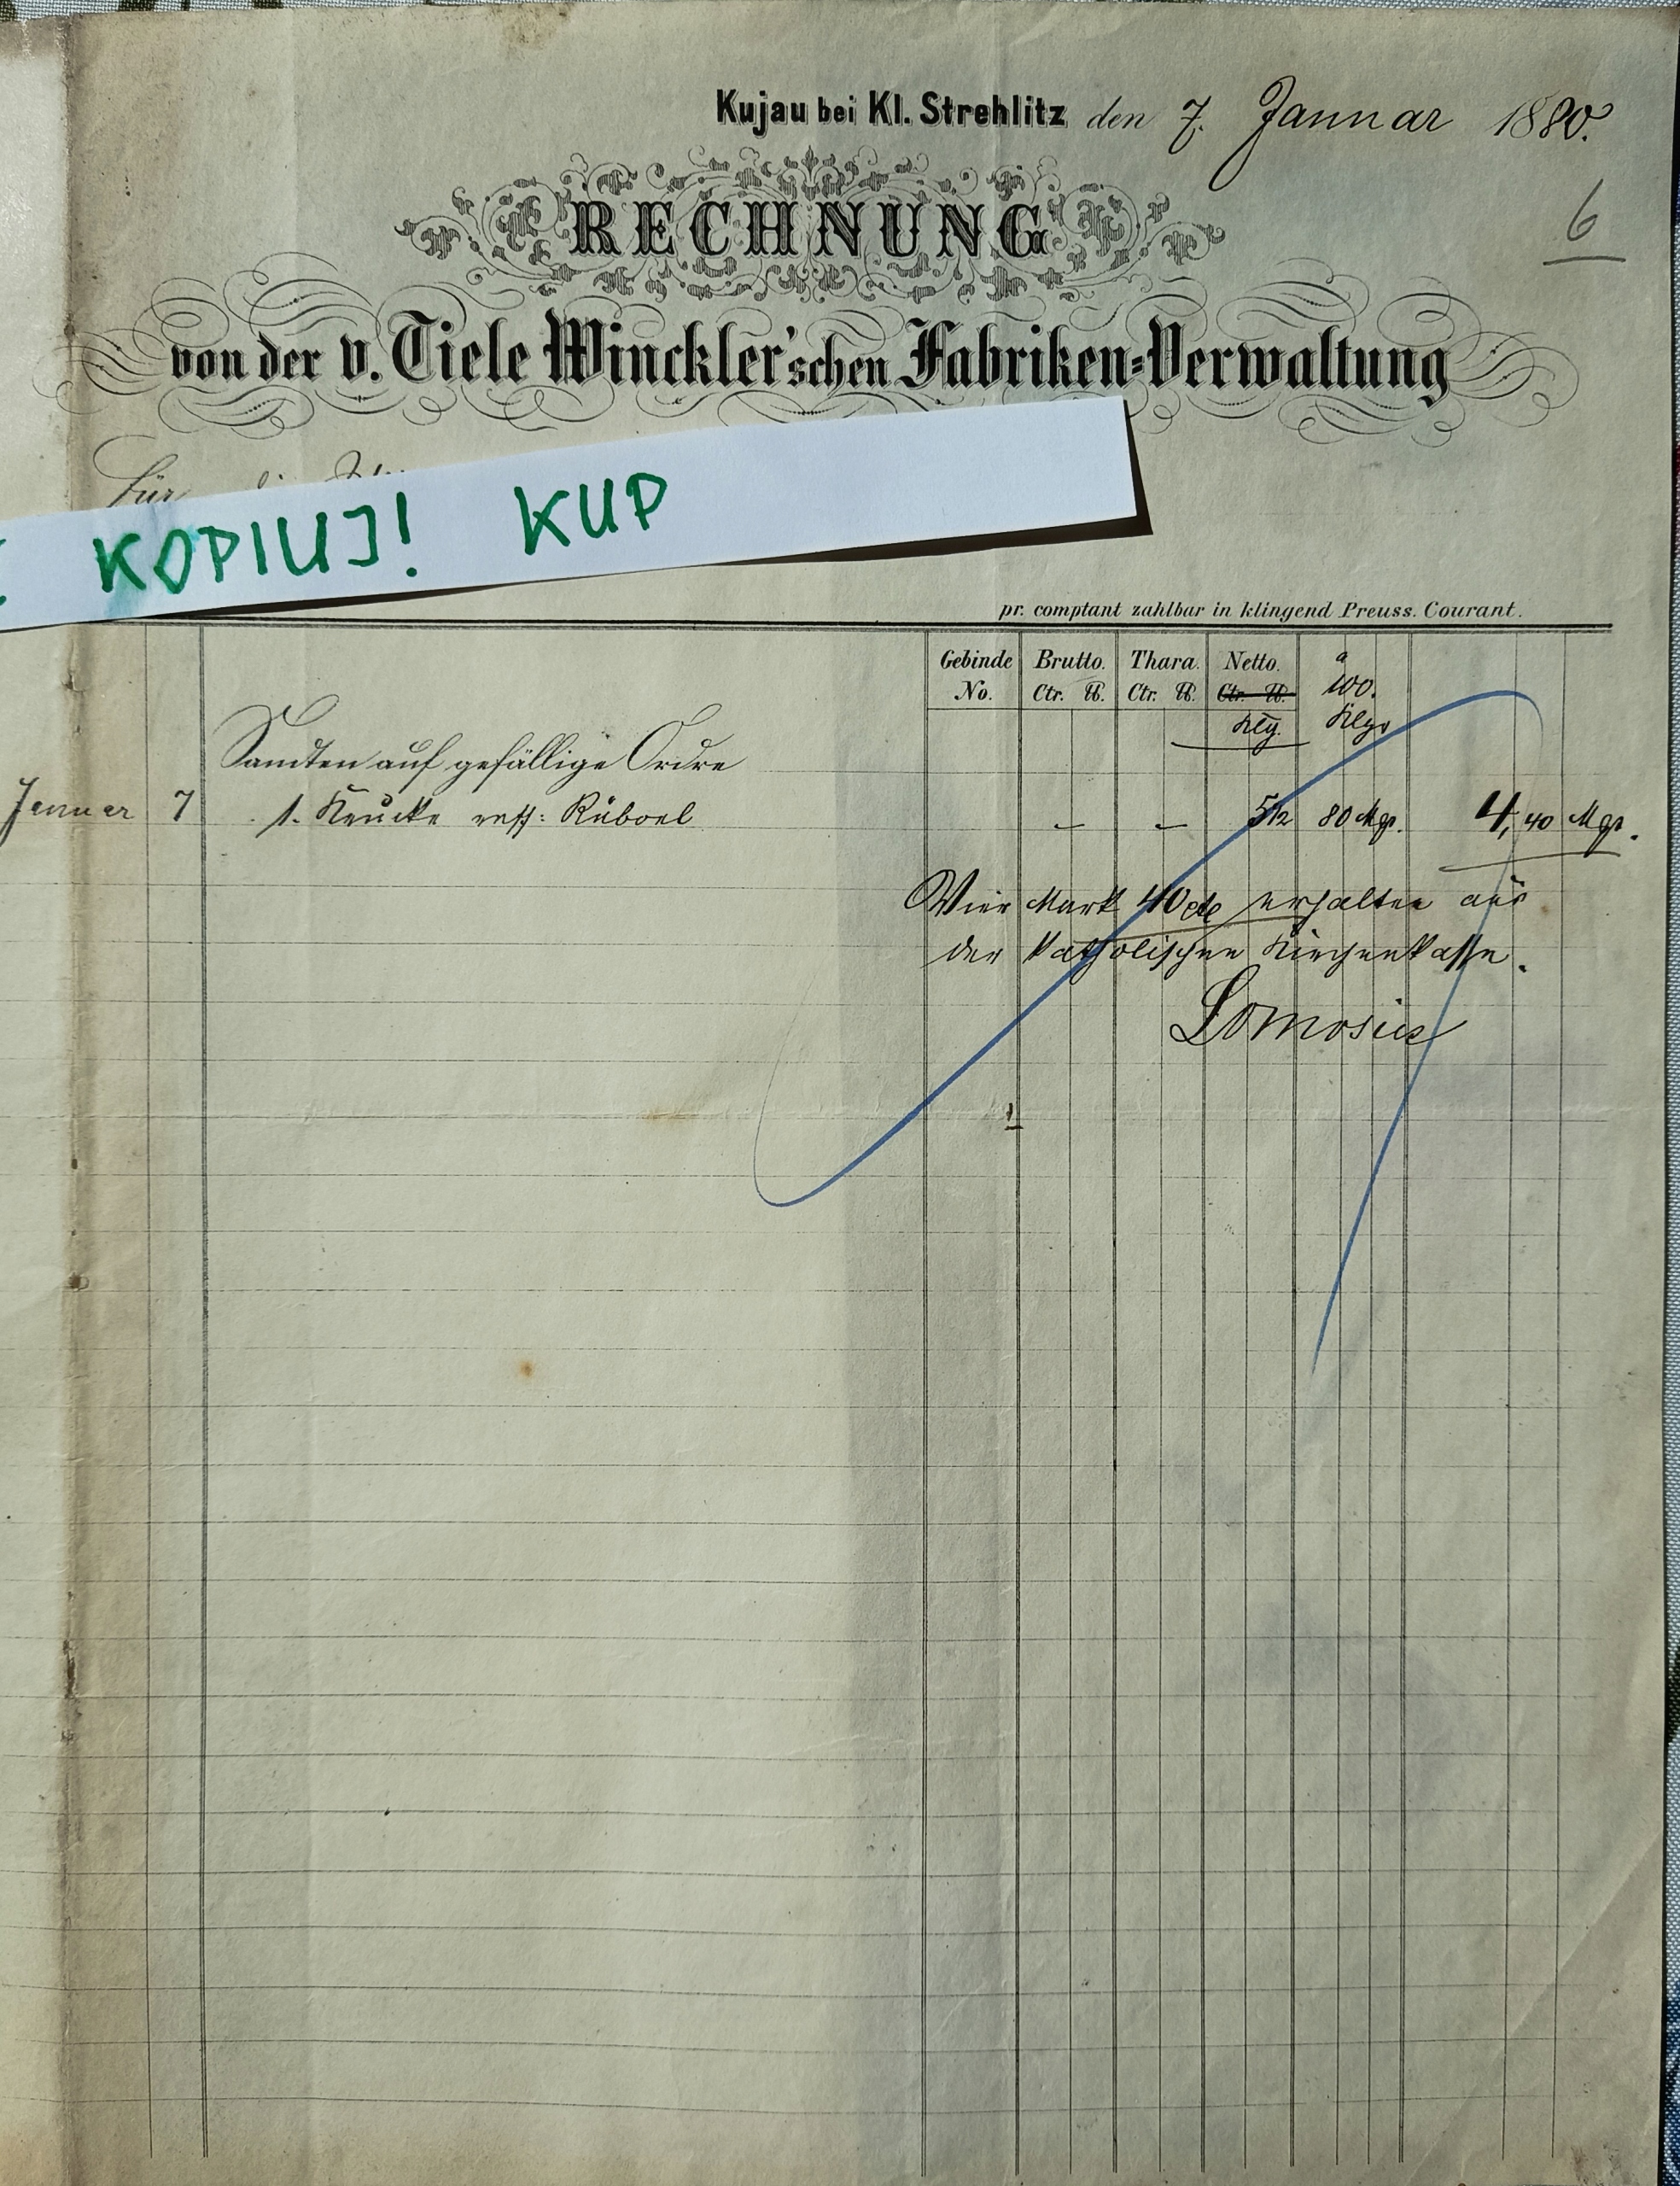 Kujau bei Kl. Strehlitz den 7. Januar 1880.
6
RECHNUNG
von der v. Tiele Winckler'schen Fabriken=Verwaltung
Für
KOPIUJ! KUP
pr. comptant zahlbar in klingend Preuss. Courant.
Gebinde No. Brutto. Ctr. ℔. Thara. Ctr. ℔. Netto. Ctr. ℔. Klg. a 100. Klgr
Sandten auf gefällige Ordre
Januar 7 1. Krucke raff: Rüboel — — 5½ 80 Mgr. 4,40 Mgr.
Vier Mark 40 erhalten aus
der katholischen Kirchenkasse.